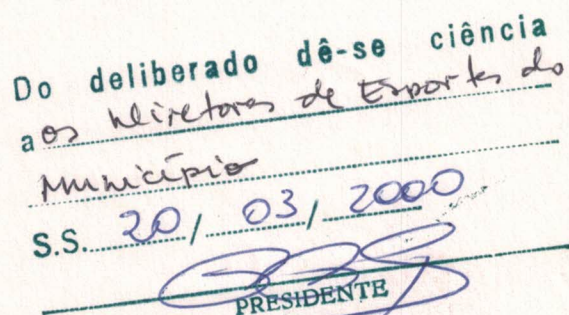 Do deliberado dê-se ciência
aos Diretores de Esportes do
Município
S.S. 20 / 03 / 2000
PRESIDENTE